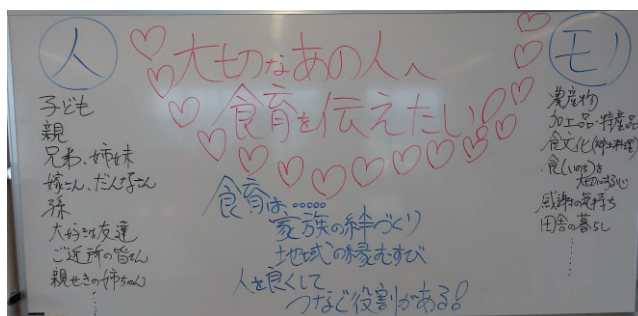 人
子ども
親
兄弟、姉妹
嫁さん、だんなさん
孫
大好きな友達
ご近所の皆さん
親せきの姉ちゃん
⋮
大切なあの人へ
食育を伝えたい!
食育は……
家族の絆づくり
地域の縁むすび
人を良くして
つなぐ役割がある!
モノ
農産物
加工品・特産品
食文化(郷土料理)
食(いのち)を
大切にする心
感謝の気持ち
田舎の暮らし
⋮